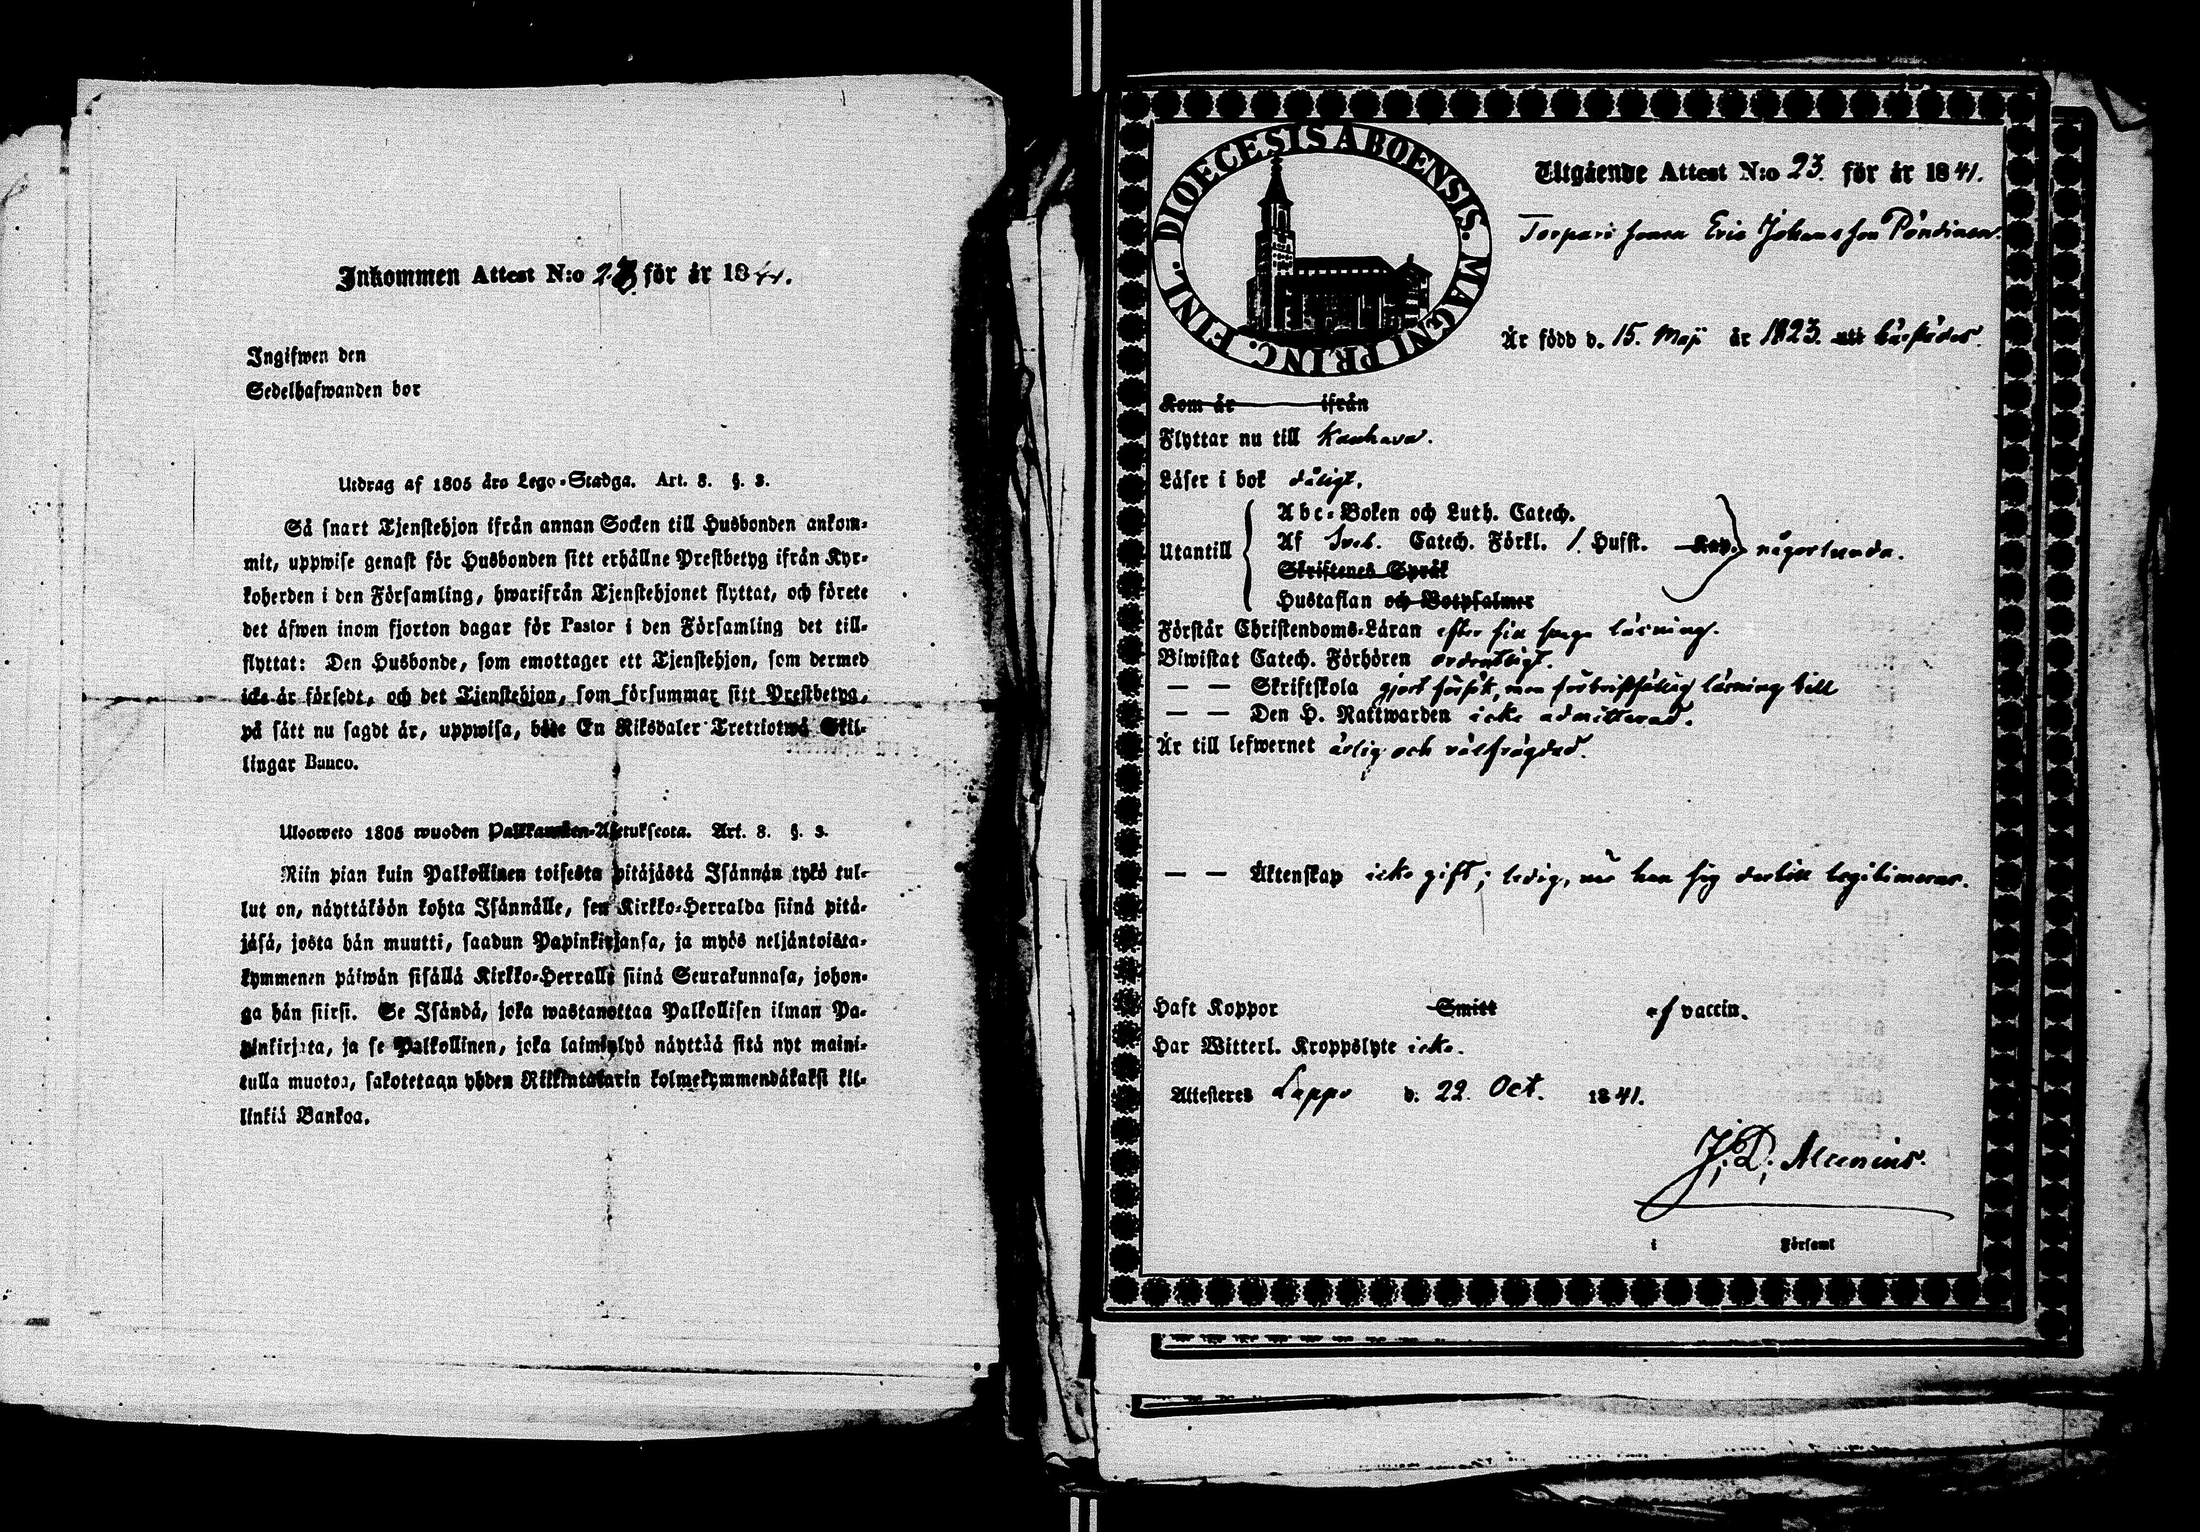 Inkommen Attest N:o 23 för år 1841.
Ingifwen den
Sedelhafwanden bor
Utdrag af 1805 års Lego-Stadga. Art. 8. §. 3.
Så snart Tjenstehjon ifrån annan Socken till Husbonden ankom-
mit, uppwise genast för Husbonden sitt erhållne Prestbetyg ifrån Kyr-
koherden i den Församling, hwarifrån Tjenstehjonet flyttat, och förete
det äfwen inom fjorton dagar för Pastor i den Församling det till-
flyttat: Den Husbonde, som emottager ett Tjenstehjon, som dermed
icke är försedt, och det Tjenstehjon, som försummar sitt Prestbetyg,
på sätt nu sagdt är, uppwisa, böte En Riksdaler Trettiotwå Skil-
lingar Banco.
Ulosweto 1805 wuoden Palkkausten-Asetuksesta. Art. 8. §. 3.
Niin pian kuin Palkollinen toisesta pitäjästä Isännän tykö tul-
lut on, näyttäköön kohta Isännälle, sen Kirkko-Herralda siinä pitä-
jäsä, josta hän muutti, saadun Papinkirjansa, ja myös neljäntoista-
kymmenen päiwän sisällä Kirkko-Herralle siinä Seurakunnasa, johon-
ga hän siirsi. Se Isändä, joka wastanottaa Palkollisen ilman Pa-
pinkirjata, ja se Palkollinen, joka laiminlyö näyttää sitä nyt maini-
tulla muotoa, sakotetaan yhden Riikintalarin kolmekymmendäkaksi kil-
linkiä Bankoa.
DIOECESIS ABOENSIS. MAGNI PRINC. FINL.
Utgående Attest N:o 23. för år 1841.
Torpare sonen Eric Johansson Pöndinen.
Är född d. 15. Maji år 1823. uti härstädes.
Kom år ifrån
Flyttar nu till Kauhava.
Läser i bok dåligt.
Abc-Boken och Luth. Catech.
Utantill Af Sveb. Catech. Förkl. /. Hufst. Kap. någorlunda.
Skriftenes Språk
Hustaflan och Botpsalmer
Förstår Christendoms-Läran efter sin svaga läsning.
Biwistat Catech. Förhören ordentligt.
— — Skriftskola gjort försök, men för bristfällig läsning till
— — Den H. Nattwarden icke admitterad.
Är till lefwernet ärlig och välfrägdad.
— — Äktenskap icke gift; ledig, när han sig dertill legitimerar.
Haft Koppor Smitt af vaccin.
Har Witterl. Kroppslyte icke.
Attesteres Lappo d. 22. Oct. 1841.
J. D. Alcenius.
i Församl